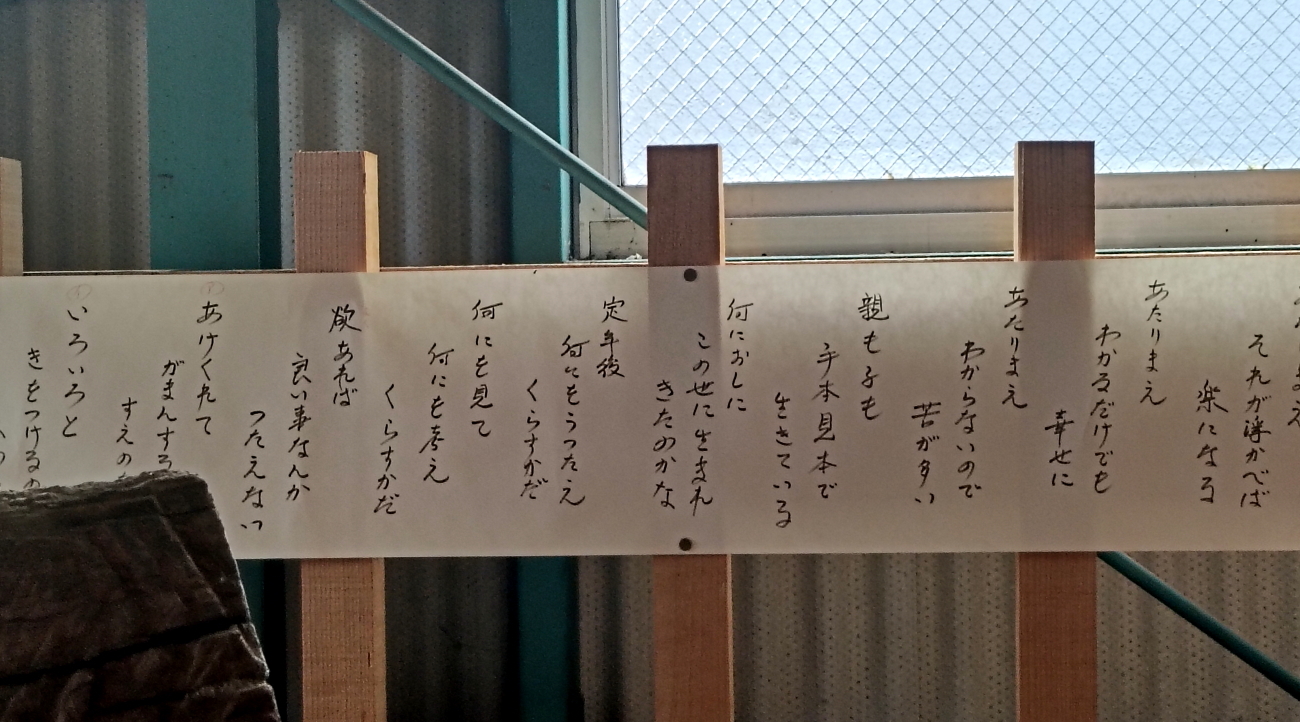 それが浮かべば
楽になる
あたりまえ
わかるだけでも
幸せに
あたりまえ
わからないので
苦が多い
親も子も
手本見本で
生きている
何におしに
この世に生まれ
きたのかな
定年後
何にもうつたえ
くらすかだ
何にも見て
何にも考え
くらすかだ
欲あれば
良い事なんか
つたえない
あけくれて
がまんする
すえの
いろいろと
きをつけるの